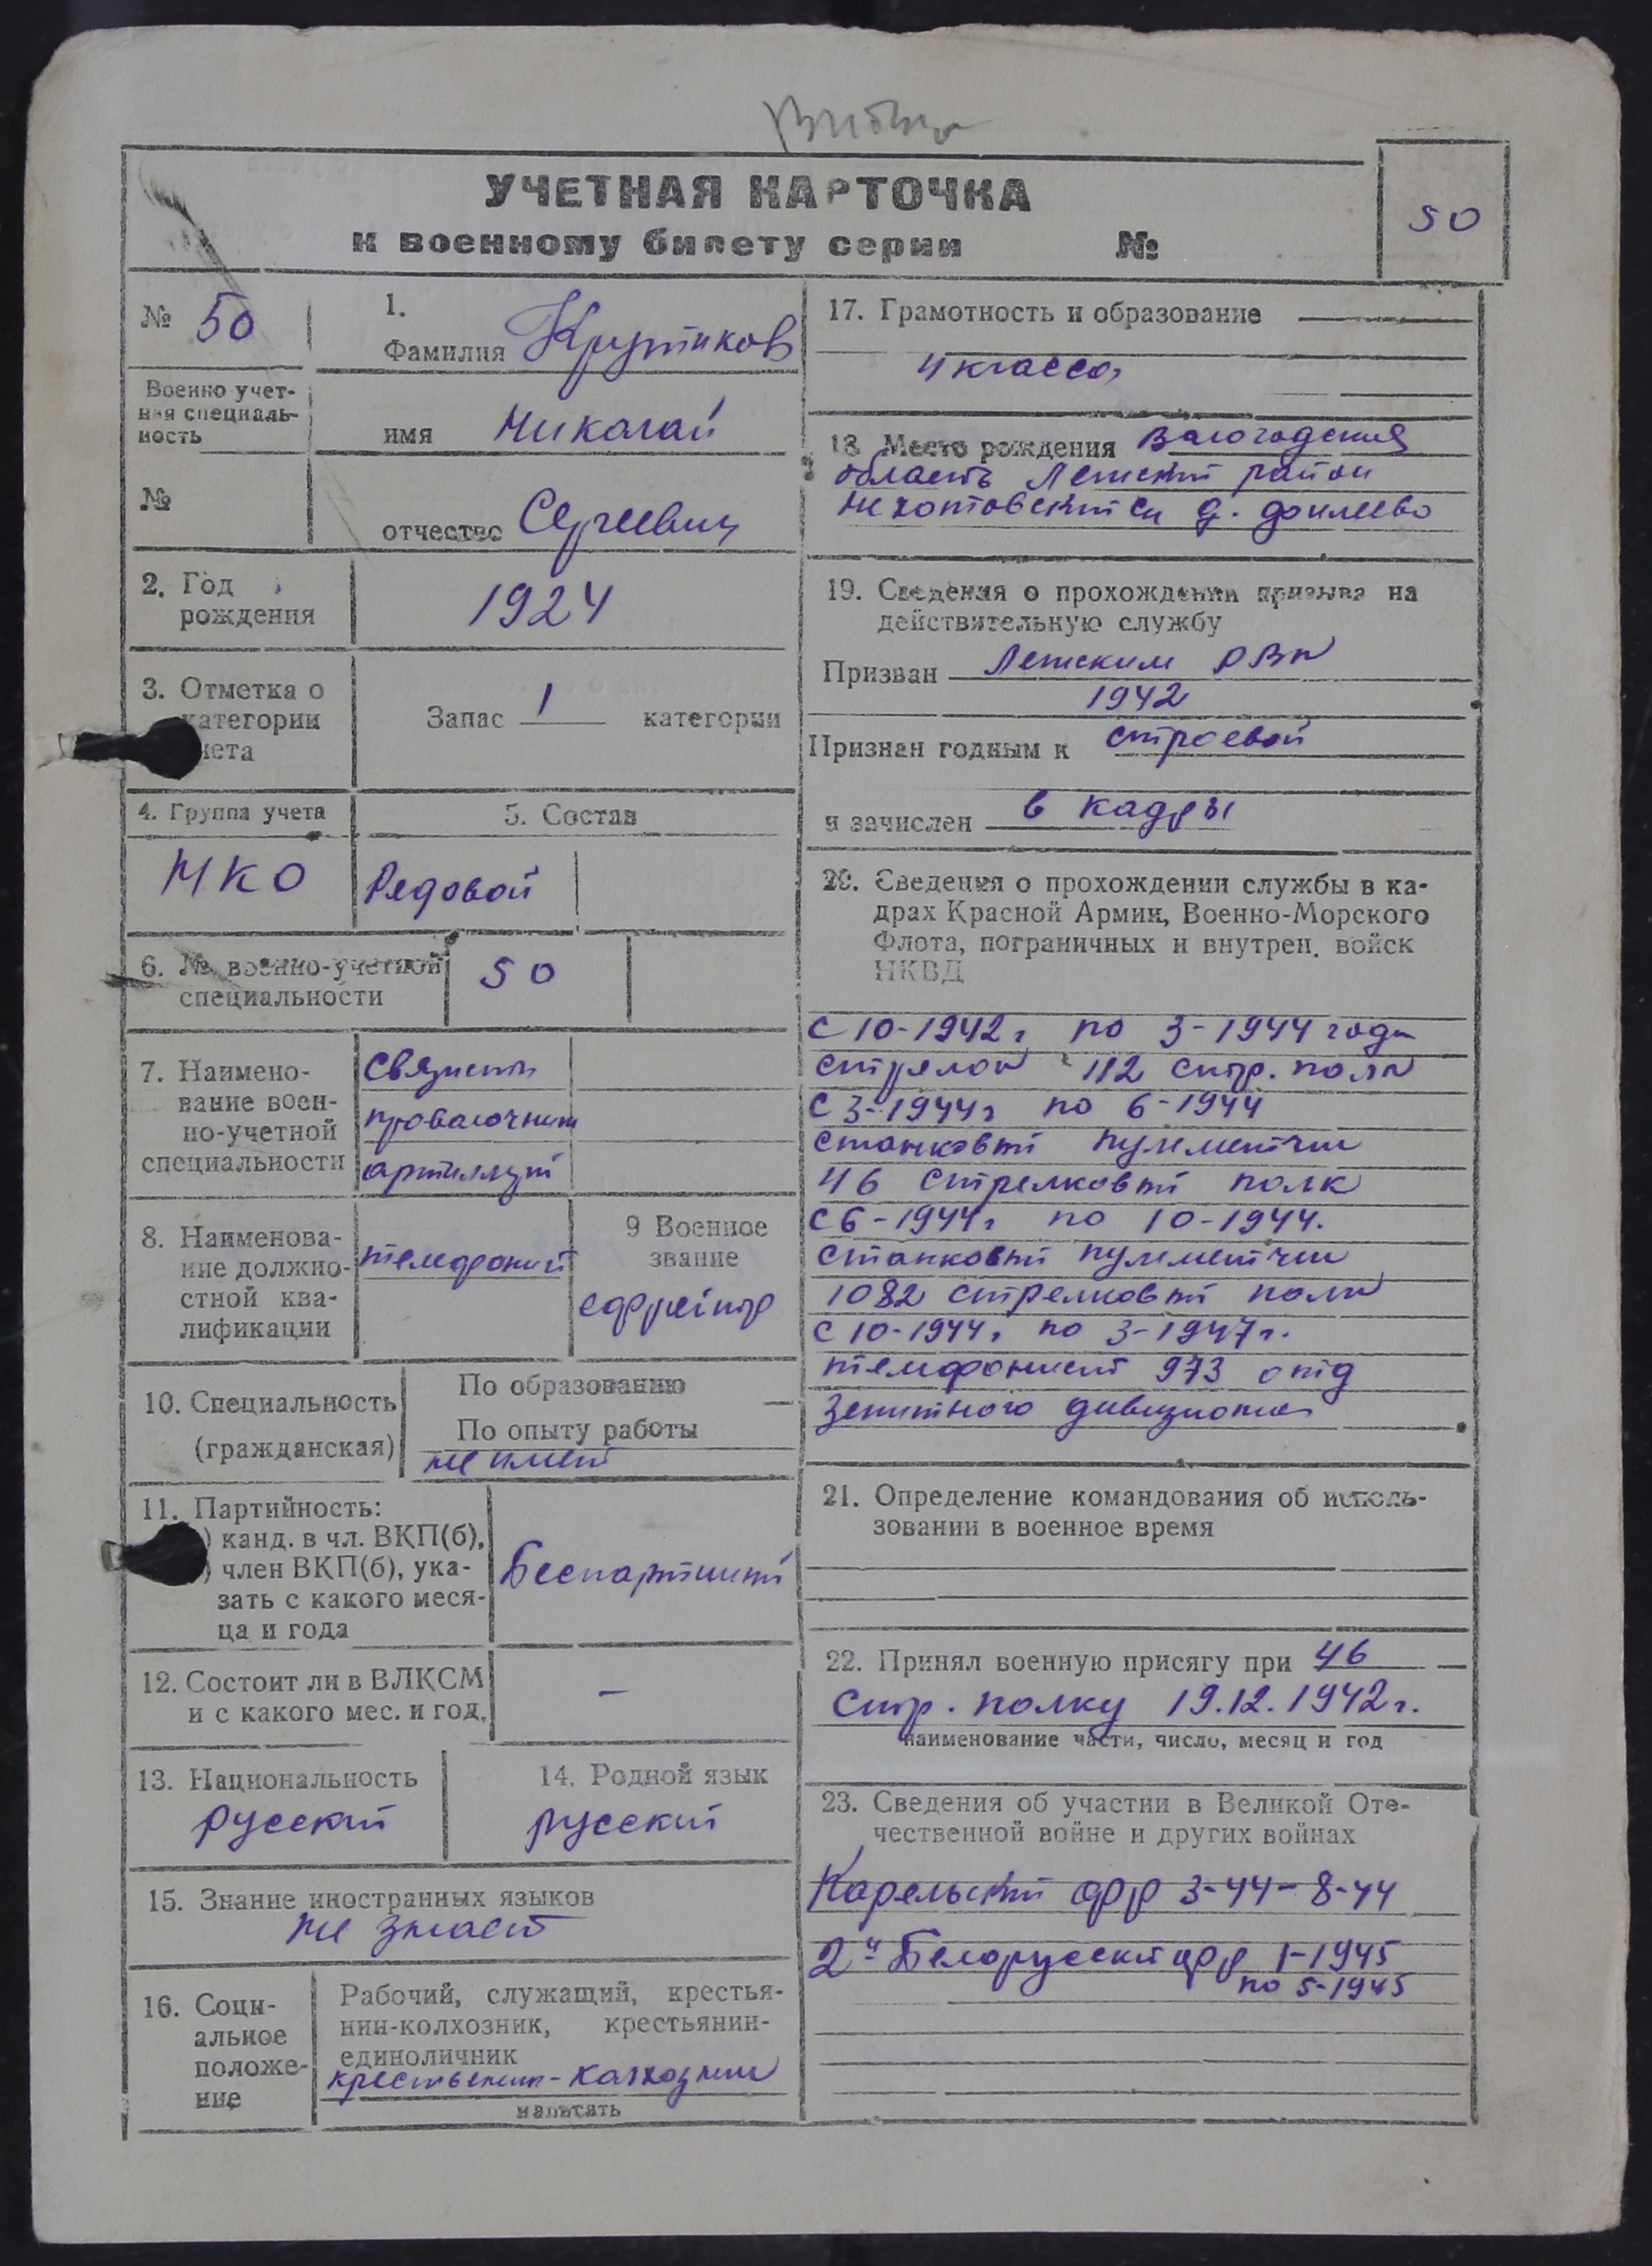 УЧЕТНАЯ КАРТОЧКА
к военному билету серии №
50
№ 50
1.
Фамилия Крутиков
Военно учет-
ная специаль-
ность
имя Николай
№
отчество Сергеевич
2. Год
рождения
1924
3. Отметка о
категории
учета
Запас 1 категории
4. Группа учета
5. Состав
МКО
Рядовой
6. № военно-учетной
специальности
50
7. Наимено-
вание воен-
но-учетной
специальности
связист
проволочник
8. Наименова-
ние должно-
стной ква-
лификации
телефонист
9 Военное
звание
ефрейтор
10. Специальность
(гражданская)
По образованию —
По опыту работы
не имеет
11. Партийность:
) канд. в чл. ВКП(б),
) член ВКП(б), ука-
зать с какого меся-
ца и года
Беспартийный
12. Состоит ли в ВЛКСМ
и с какого мес. и год.
—
13. Национальность
русский
14. Родной язык
русский
15. Знание иностранных языков
не знает
16. Соци-
альное
положе-
ние
Рабочий, служащий, крестья-
нин-колхозник, крестьянин-
единоличник
крестьянин-колхозник
написать
17. Грамотность и образование
4 класса
18. Место рождения Вологодская
область Лежский район
д.
19. Сведения о прохождении призыва на
действительную службу
Призван Лежским РВК
1942
Признан годным к строевой
и зачислен в кадры
20. Сведения о прохождении службы в ка-
драх Красной Армии, Военно-Морского
Флота, пограничных и внутрен. войск
НКВД
с 10-1942г по 3-1944 года
стрелок 112 стр. полк
с 3-1944г по 6-1944
станковый пулеметчик
46 стрелковый полк
с 6-1944г по 10-1944.
станковый пулеметчик
1082 стрелковый полк
с 10-1944г по 3-1947г.
телефонист 973 отд
зенитного дивизиона
21. Определение командования об исполь-
зовании в военное время
22. Принял военную присягу при 46
стр. полку 19.12.1942г.
наименование части, число, месяц и год
23. Сведения об участии в Великой Оте-
чественной войне и других войнах
Карельский фр 3-44-8-44
2й Белорусский фр 1-1945
по 5-1945